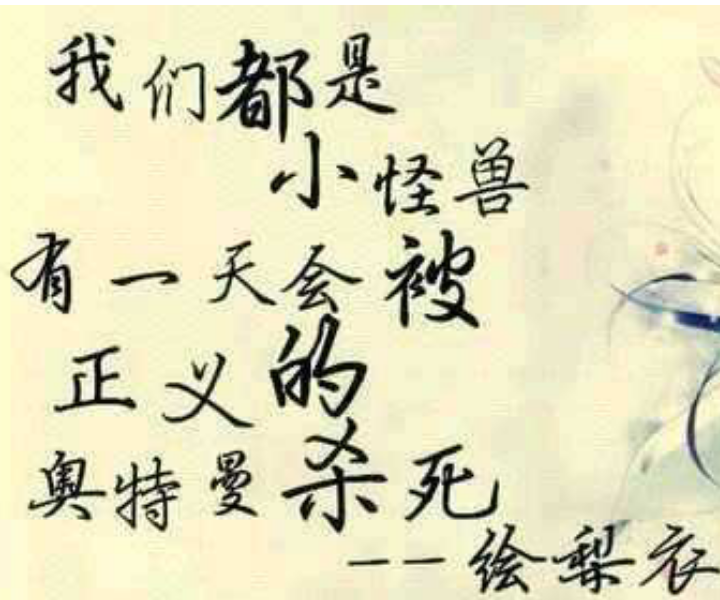 我们都是
小怪兽
有一天会被
正义的
奥特曼杀死
--绘梨衣